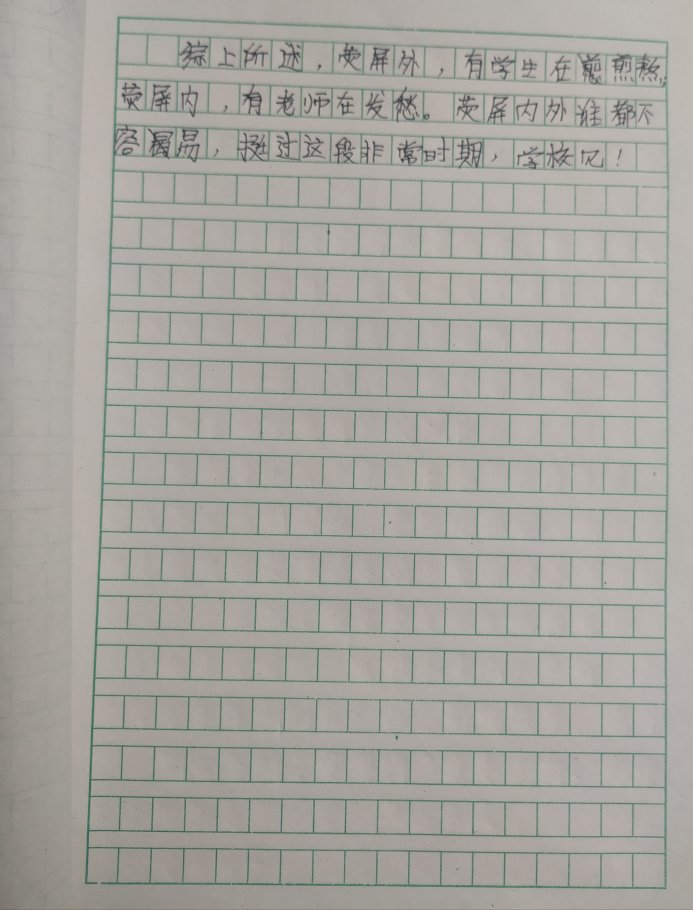 综上所述，荧屏外，有学生在煎熬；
荧屏内，有老师在发愁。荧屏内外谁都不
容易，挺过这段非常时期，学校见！